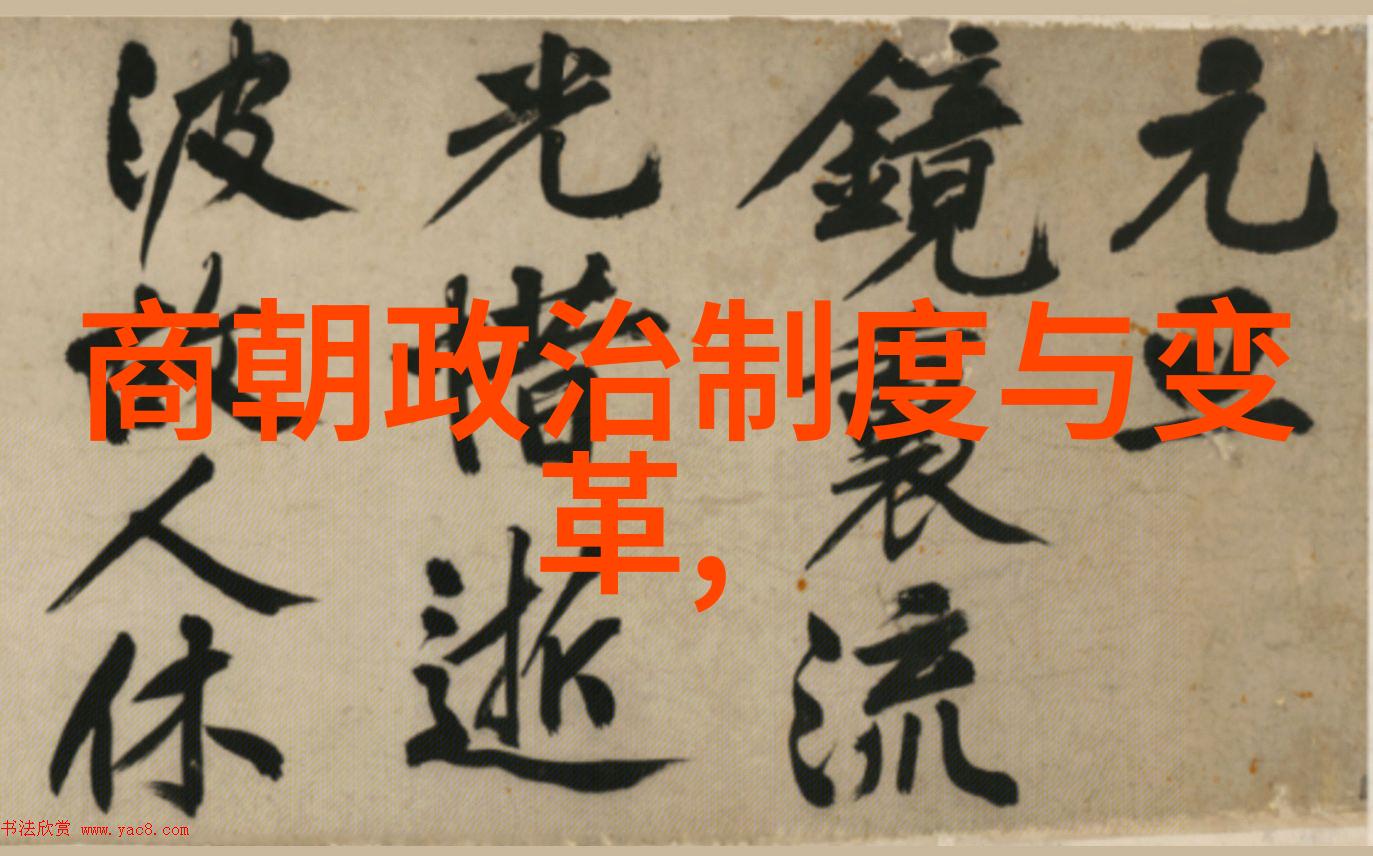 商朝政治制度与变
革,
元
鏡裏流
光惜逝
波故人休
书法欣赏 www.yac8.com